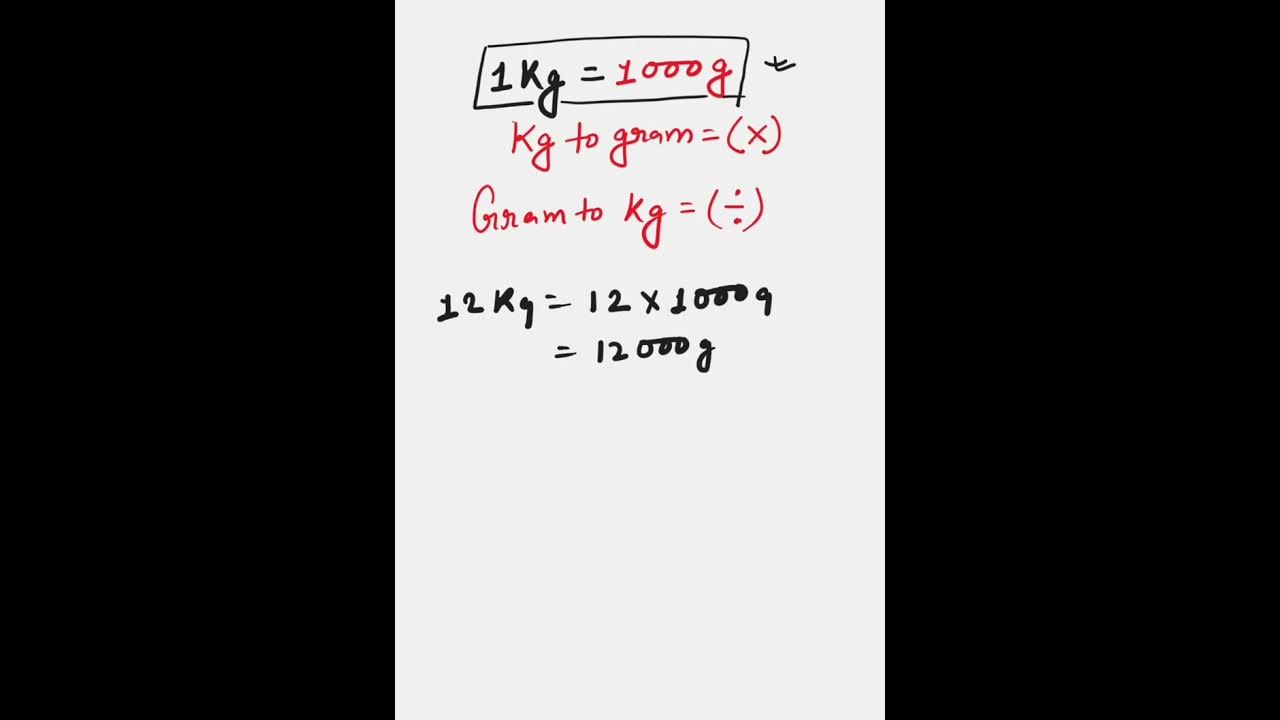 1Kg = 1000g
Kg to gram = (×)
Gram to kg = (÷)
12Kg = 12 × 1000g
= 12000g